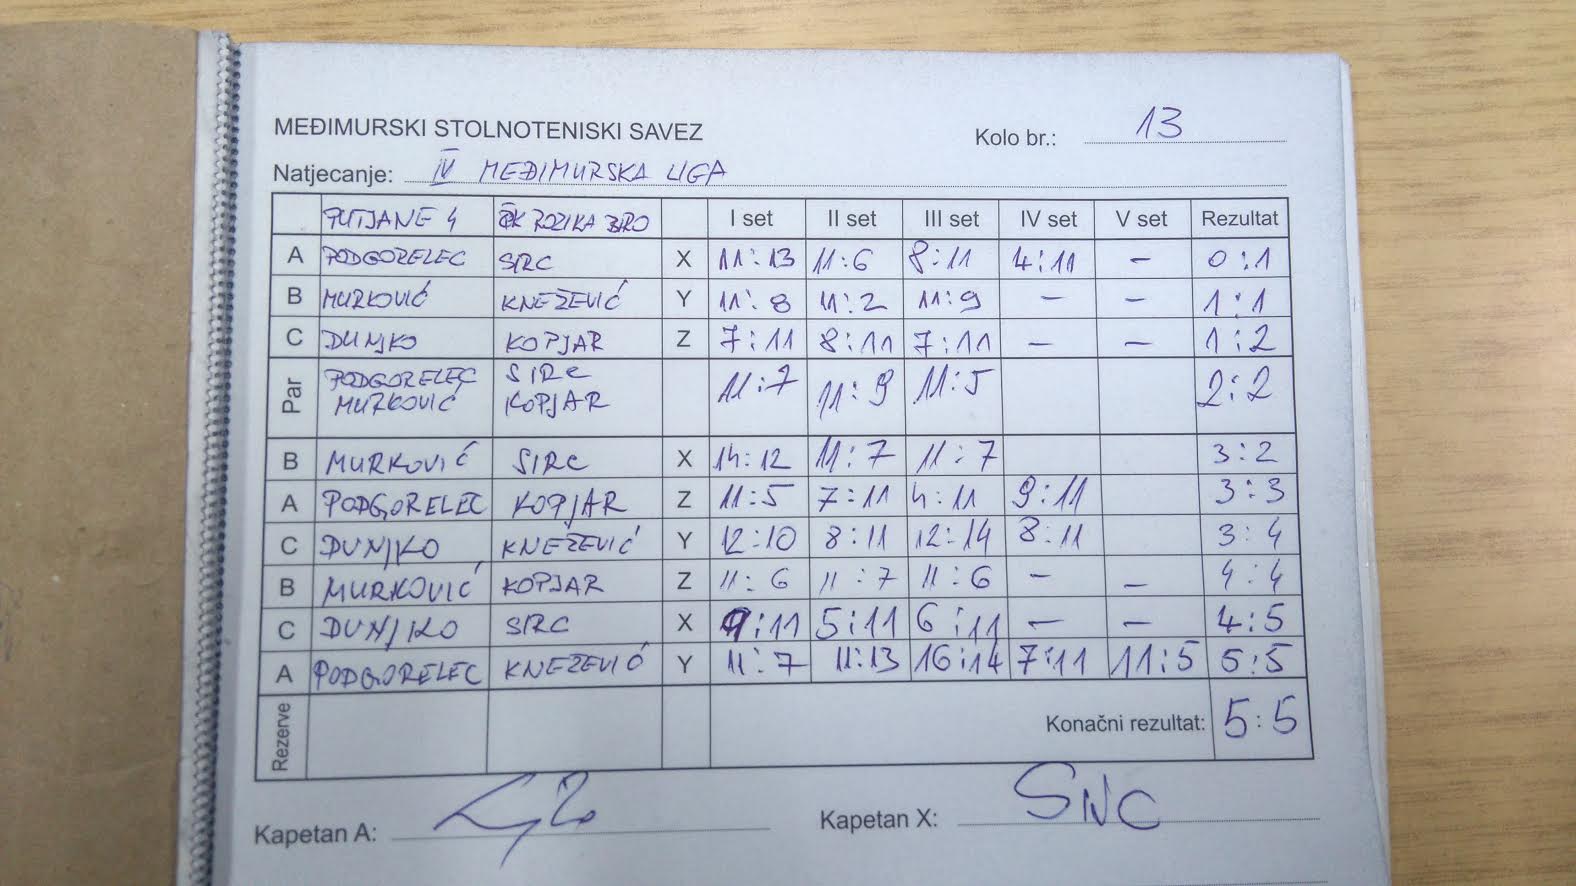 MEĐIMURSKI STOLNOTENISKI SAVEZ
Kolo br.: 13
Natjecanje: IV MEĐIMURSKA LIGA
PUTJANE 4 ROZIKA BRO I set II set III set IV set V set Rezultat
A PODGORELEC SIRC X 11:13 11:6 8:11 4:11 - 0:1
B MURKOVIĆ KNEŽEVIĆ Y 11:8 11:2 11:9 - - 1:1
C DUNJKO KOPJAR Z 7:11 8:11 7:11 - - 1:2
Par PODGORELEC MURKOVIĆ SIRC KOPJAR 11:7 11:9 11:5 2:2
B MURKOVIĆ SIRC X 14:12 11:7 11:7 3:2
A PODGORELEC KOPJAR Z 11:5 7:11 4:11 9:11 3:3
C DUNJKO KNEŽEVIĆ Y 12:10 8:11 12:14 8:11 3:4
B MURKOVIĆ KOPJAR Z 11:6 11:7 11:6 - - 4:4
C DUNJKO SIRC X 9:11 5:11 6:11 - - 4:5
A PODGORELEC KNEŽEVIĆ Y 11:7 11:13 16:14 7:11 11:5 5:5
Rezerve Konačni rezultat: 5:5
Kapetan A: Kapetan X: SIRC